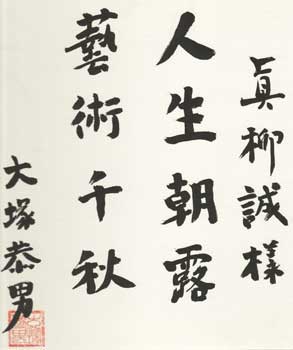 眞柳誠様
人生朝露
藝術千秋
大塚恭男